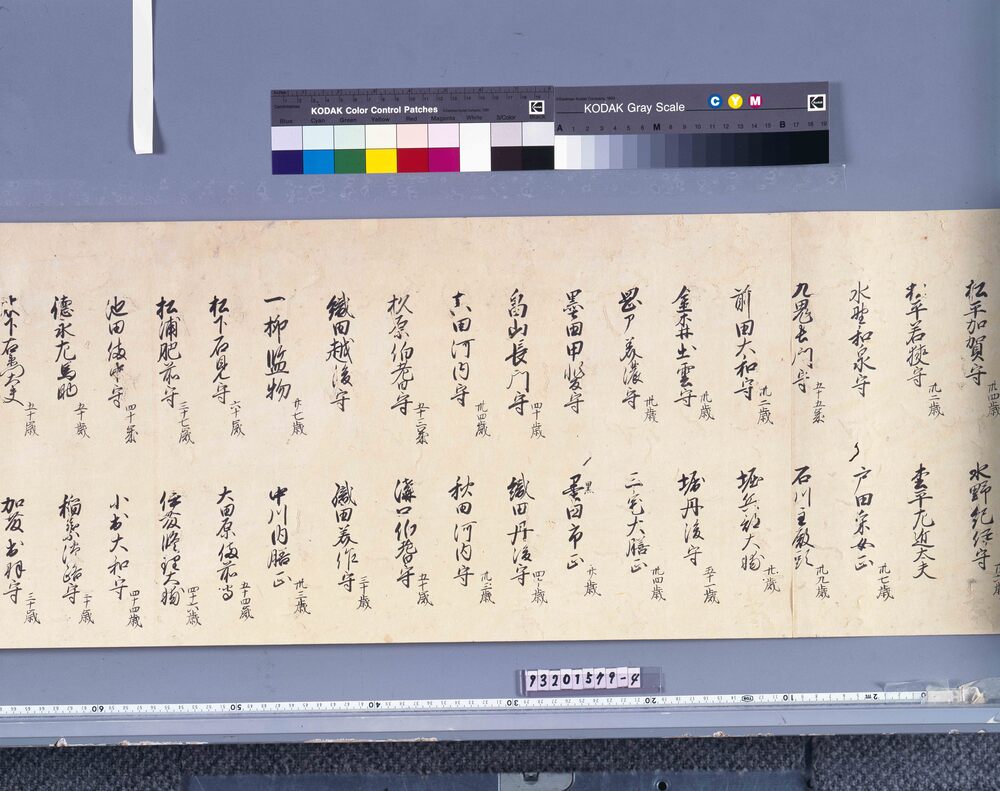 KODAK Color Control Patches
Blue Cyan Green Yellow Red Magenta White 3/Color Black
KODAK Gray Scale
C Y M
A 1 2 3 4 5 6 M 8 9 10 11 12 13 14 15 B 17 18 19
松平加賀守 卅四歳
松平若狭守 卅二歳
水野和泉守
九鬼長門守 五十五歳
前田大和守 卅二歳
金森出雲守 卅歳
岡部美濃守 卅歳
黒田甲斐守
畠山長門守 四十歳
真田河内守 卅四歳
杉原伯耆守 五十三歳
織田越後守
一柳監物 廿七歳
松下石見守 六十歳
松浦肥前守 三十七歳
池田備中守 四十歳
徳永左馬助 五十歳
右衛門大夫 五十歳
水野紀伊守
松平左近大夫
戸田采女正 卅七歳
石川主殿頭 卅九歳
堀兵部大輔 卅歳
堀丹後守 五十一歳
三宅大膳正 卅四歳
黒
黒田市正 廿歳
織田丹後守
秋田河内守
溝口伯耆守 五十歳
織田美作守 三十歳
中川内膳正 卅三歳
大田原備前守 五十四歳
伊藤修理大輔 四十六歳
小出大和守 四十四歳
稲葉淡路守 三十歳
加藤出羽守 三十歳
93201579-4
60 50 40 30 20 10